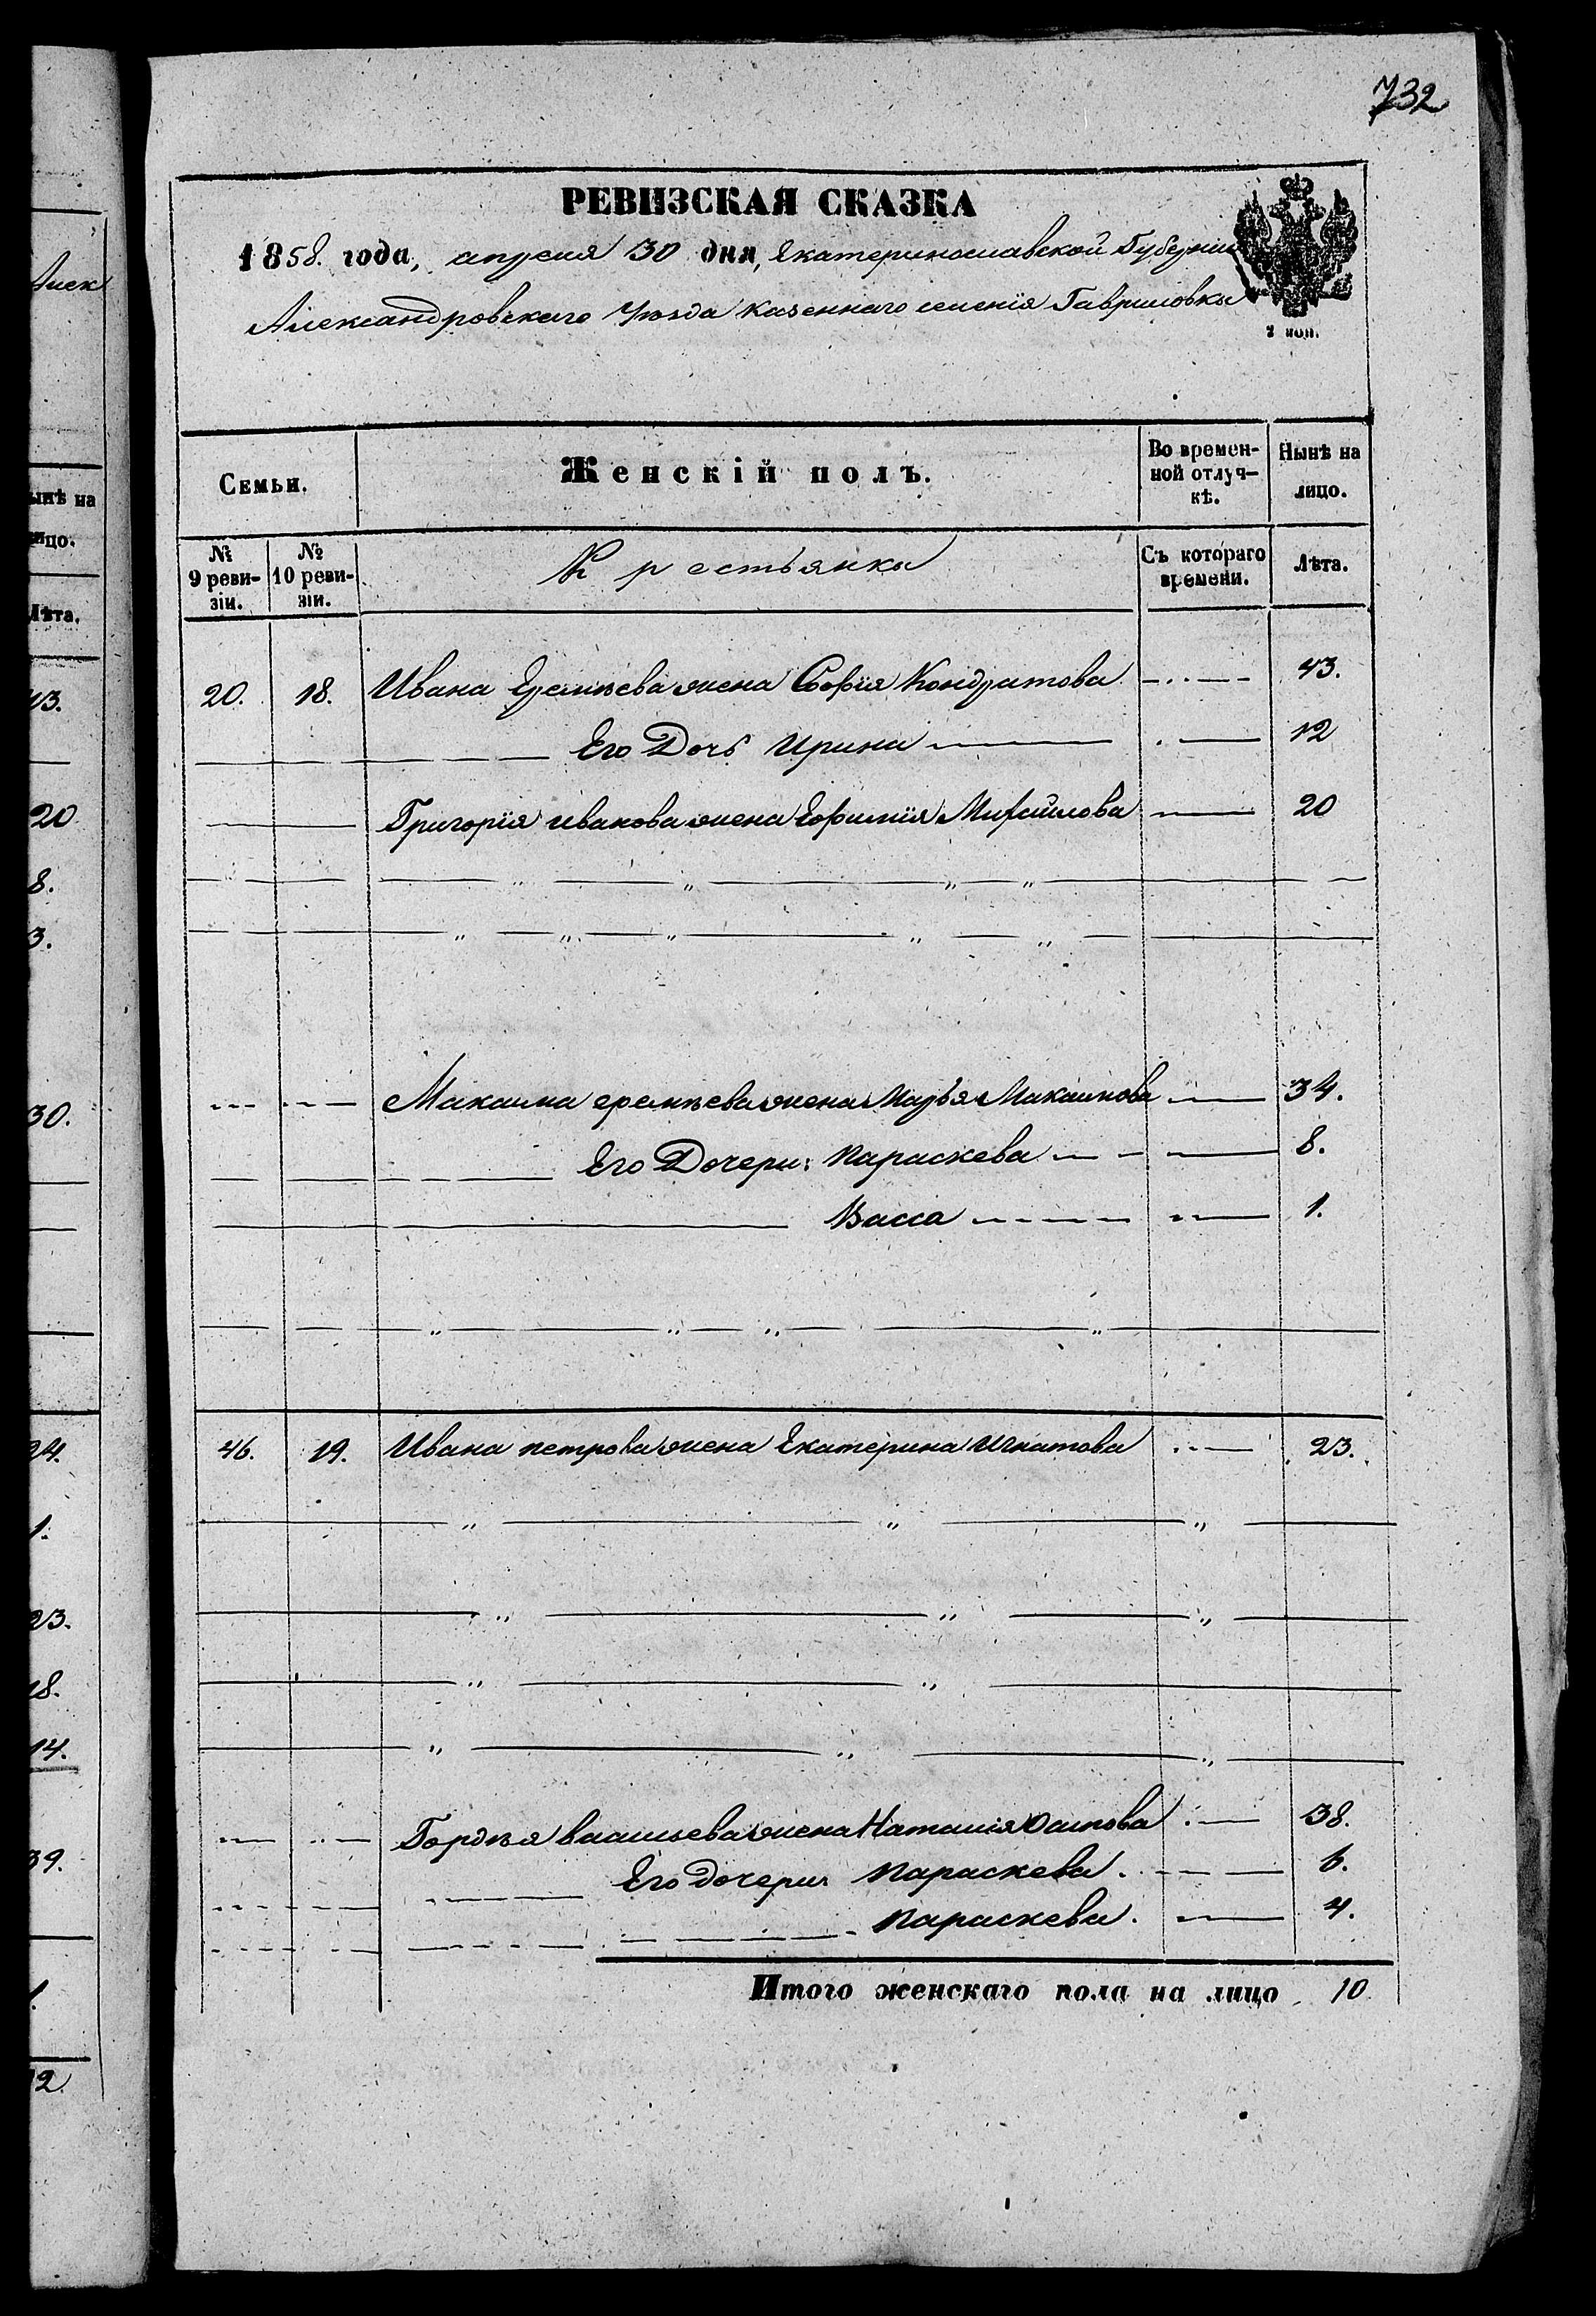 732
РЕВИЗСКАЯ СКАЗКА
1858. года, апреля 30 дня, Екатеринославской Губернии
Александровскаго Уѣзда казеннаго селенія Гавриловки
2 коп.
Семьи.
Женскій полъ.
Во времен-
ной отлуч-
кѣ.
Нынѣ на
лицо.
№
9 реви-
зіи.
№
10 реви-
зіи.
Крестьянки
Съ котораго
времени.
Лѣта.
20. 18. Ивана Еремѣева жена Софія Кондратова 43.
Его Дочь Ирина 12
Григорія иванова жена Ефимія Михайлова 20
Максима еремѣева жена Марья Максимова 34.
Его Дочери: Параскева 8.
Васса 1.
46. 19. Ивана петрова жена Екатерина Игнатова 23.
Гордѣя власьева жена Наталія 38.
Его дочери Параскева. 6.
Параскева. 4.
Итого женскаго пола на лицо 10
Алек
ынѣ на
ицо.
Лѣта.
43.
20
8.
3.
30.
24.
1.
23.
18.
14.
39.
1.
12.